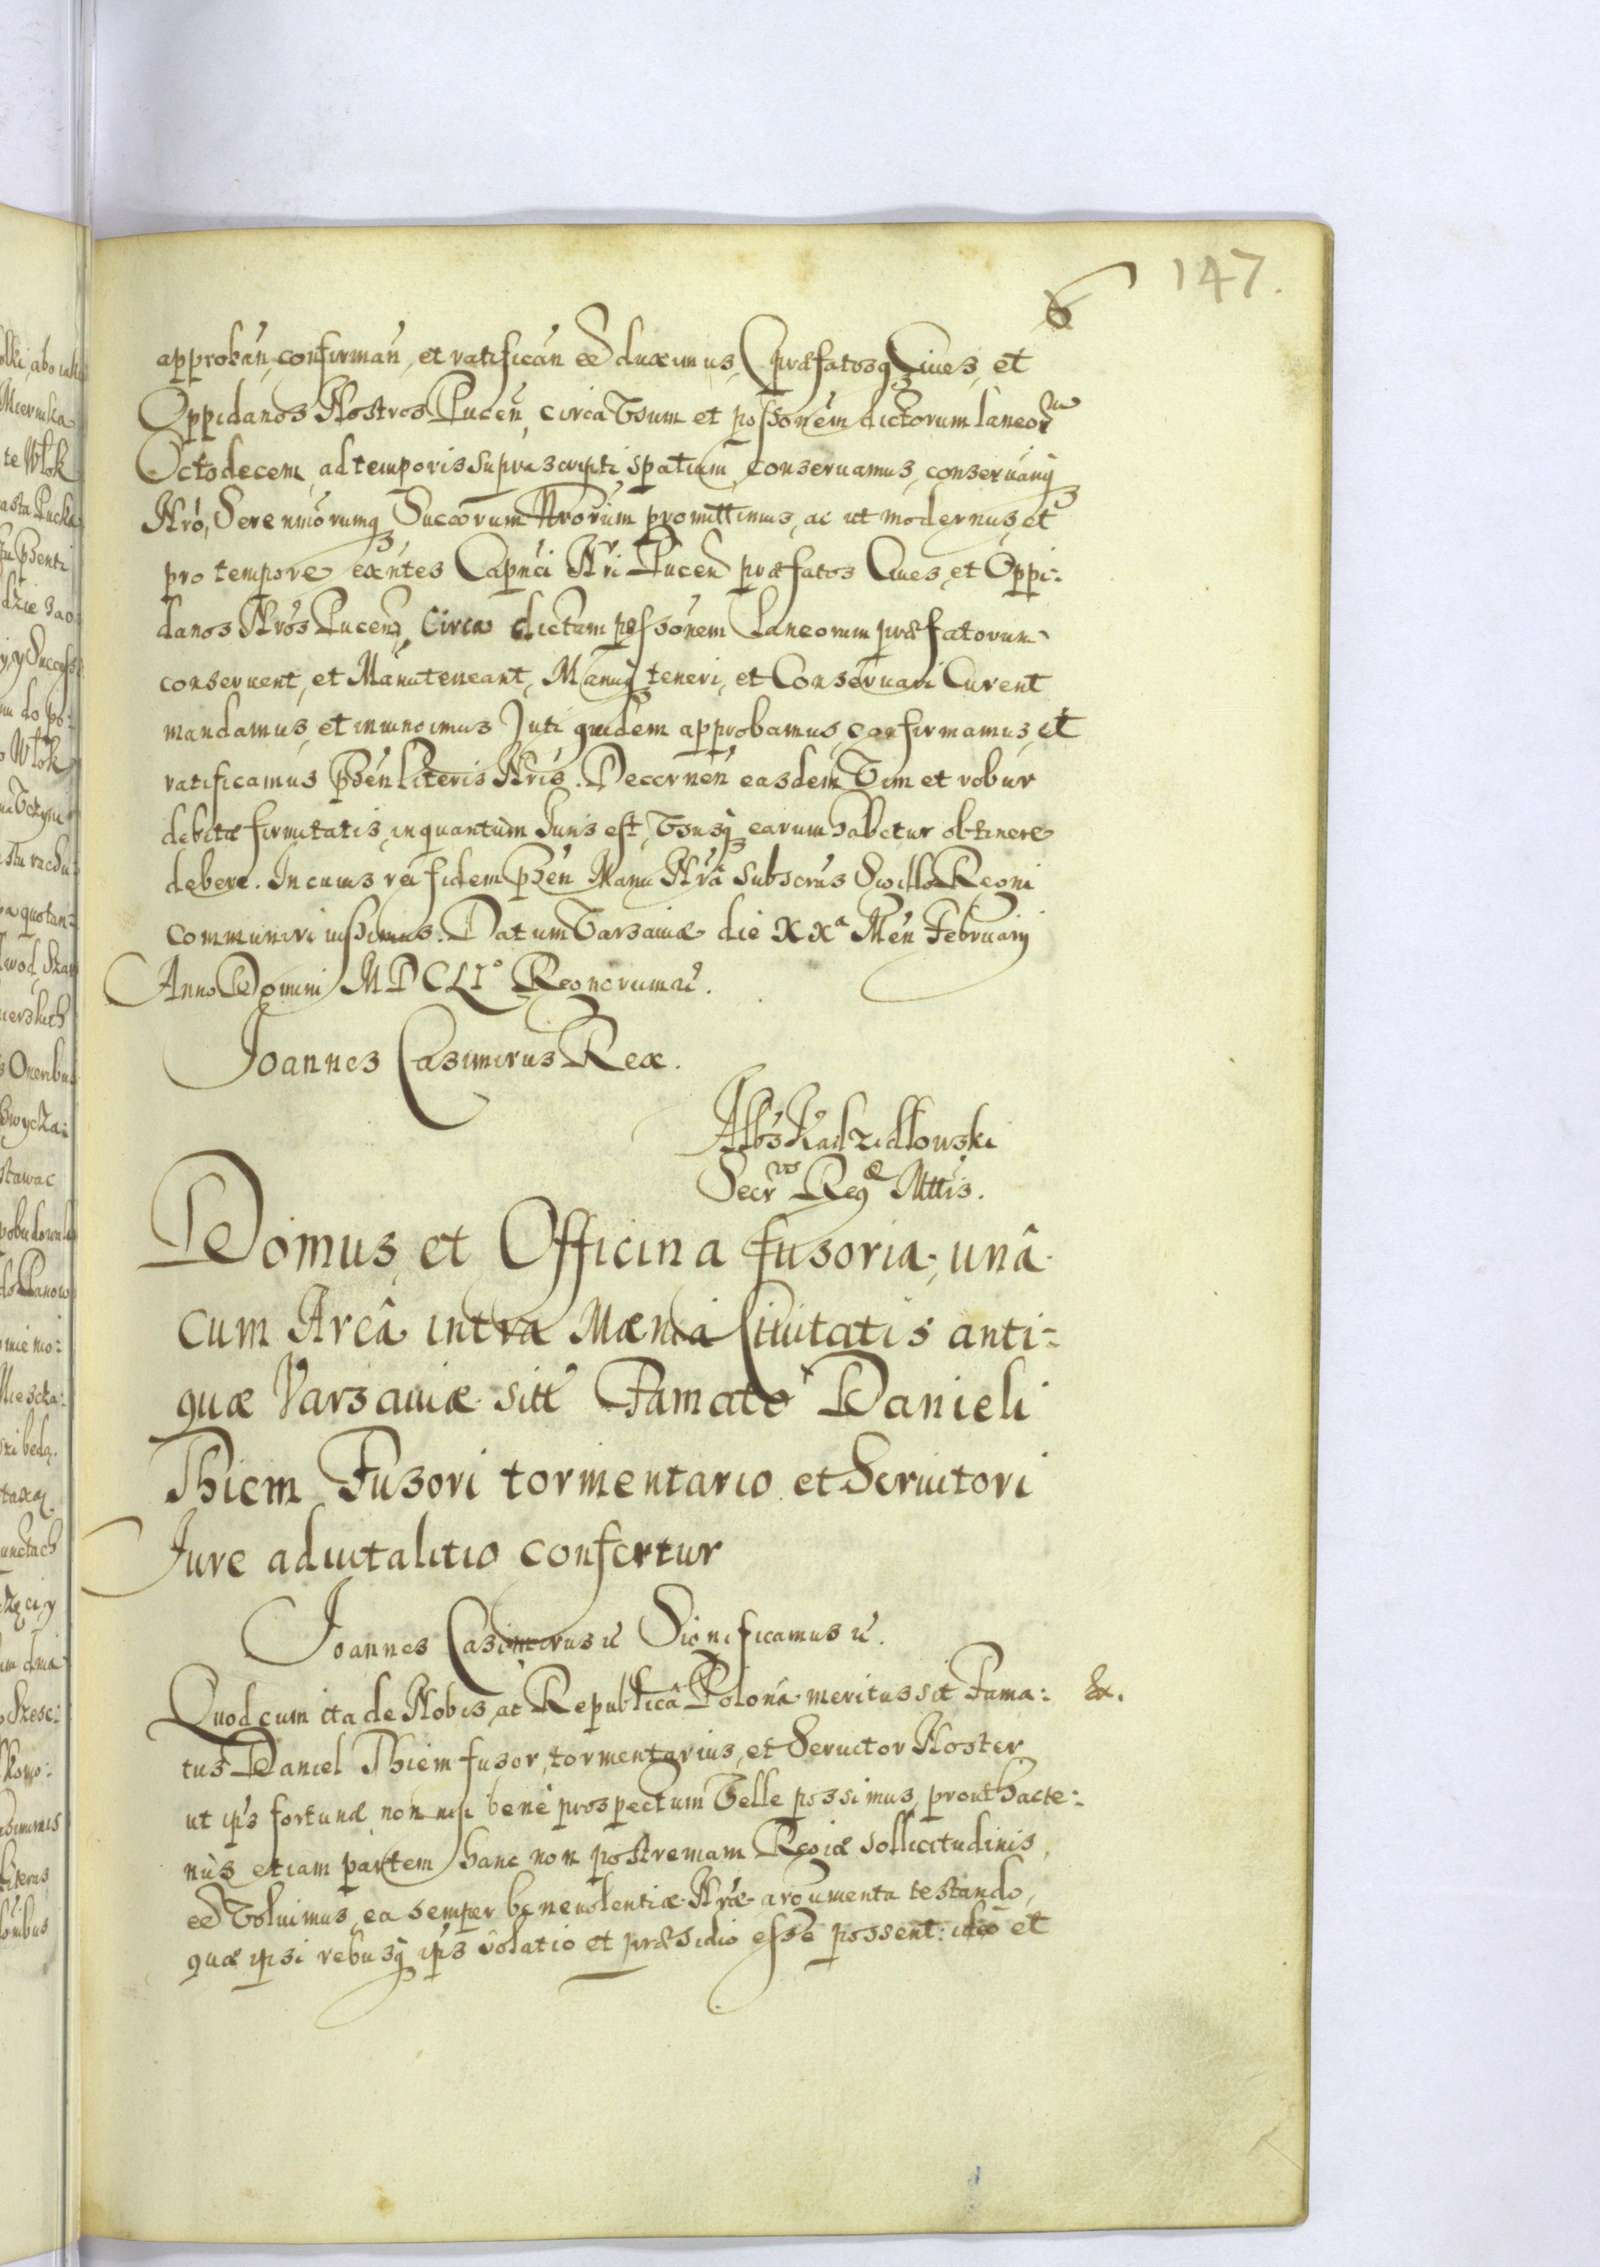 147.
6
approbañ, confirmañ, et ratificañ ee duximus, præfatosq Ciues, et
Oppidanos Nostros Puceñ, circa Vsum et possonem dictorum laneorum
Octodecem, ad temporis suprascripti spatium, conseruamus, conseruariq
Nro, Serenmorumq Succorum Nrorum promittimus, ac ut modernus, et
pro tempore exntes Capnei Nri Puceñ præfatos Ciues, et Oppi:
danos Nros Puceñ, Circa dictam possonem Laneorum præfatorum
conseruent, et Manuteneant, Manuq teneri, et Conseruari Curent
mandamus, et iniungimus Juti quidem approbamus, confirmamus, et
ratificamus Psen Literis Nris. Decerneñ easdem Vim et robur
debitæ firmitatis, in quantum Juris est, Vsusq earum habetur obtinere
debere. In cuius rei fidem Psen Manu Nra subscrus Sigillo Regni
communiri iussimus. Datum Varsauiæ die XXa Men Februarij
Anno Domini MDCLIo Regnorum ec.
Joannes Casimirus Rex.
Albs Kadzidlowski
Secrus Regæ Mttis.
Domus et Officina fusoria, unâ
cum Areâ intra Mænia Ciuitatis anti:
quæ Varsauiæ sitt Famato Danieli
Thiem Fusori tormentario et Seruitori
Jure aduitalitio confertur
Joannes Casimirus ec Significamus ec.
Quod cum ita de Nobis, ac Republicâ Polona meritus sit Fama: Ex.
tus Daniel Thiem fusor, tormentarius, et Seruitor Noster
ut ips fortunæ non nisi bene prospectum Velle possimus, prout hacte:
nus etiam partem hanc non postremam Regiæ sollicitudinis,
ee Voluimus, ea semper beneuolentiæ Nræ argumenta testando,
quæ ipsi rebusq ips solatio et præsidio esse possent: ideo et